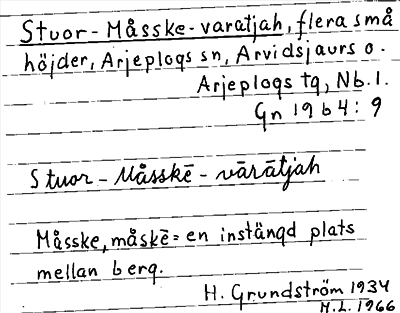 Stuor-Måsske-varatjah, flera små
höjder, Arjeplogs sn, Arvidsjaurs o.
Arjeplogs tg, Nb. l.
Gn 1964:9
Stuor-Måsskē-vārātjah
Måsske, måskē = en instängd plats
mellan berg.
H. Grundström 1934
H.L. 1966